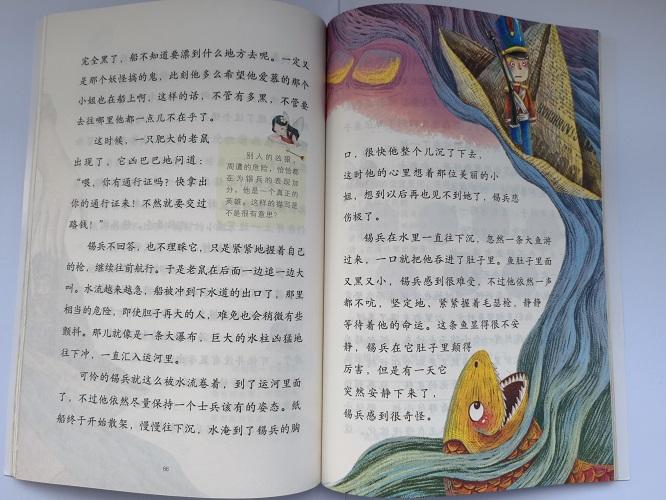 完全黑了，船不知道要漂到什么地方去呢。一定又
是那个妖怪搞的鬼，此刻他多么希望他爱慕的那个
小姐也在船上啊，这样的话，不管有多黑，不管要
去往哪里他都一点儿不在乎了。
这时候，一只肥大的老鼠
出现了，它凶巴巴地问道：
“喂，你有通行证吗？快拿出
你的通行证来！不然就要交过
路钱！”
别人的凶狠，
周遭的危险，恰恰都
在为锡兵的表现加
分。他是一个真正的
英雄。这样的描写是
不是很有意思？
锡兵不回答，也不理睬它，只是紧紧地握着自己
的枪，继续往前航行。于是老鼠在后面一边追一边大
叫。水流越来越急，船被冲到下水道的出口了，那里
相当的危险，即使胆子再大的人，难免也会稍微有些
颤抖。那儿就像是一条大瀑布，巨大的水柱凶猛地
往下冲，一直汇入运河里。
可怜的锡兵就这么被水流卷着，到了运河里面
了，不过他依然尽量保持一个士兵该有的姿态。纸
船终于开始散架，慢慢往下沉，水淹到了锡兵的胸
66
口，很快他整个儿沉了下去，
这时他的心里想着那位美丽的小
姐，想到以后再也见不到她了，锡兵悲
伤极了。
锡兵在水里一直往下沉，忽然一条大鱼游
过来，一口就把他吞进了肚子里。鱼肚子里面
又黑又小，锡兵感到很难受，不过他依然一声
都不吭，坚定地、紧紧握着毛瑟枪，静静
等待着他的命运。这条鱼显得很不安
静，锡兵在它肚子里颠得
厉害，但是有一天它
突然安静下来了，
锡兵感到很奇怪。